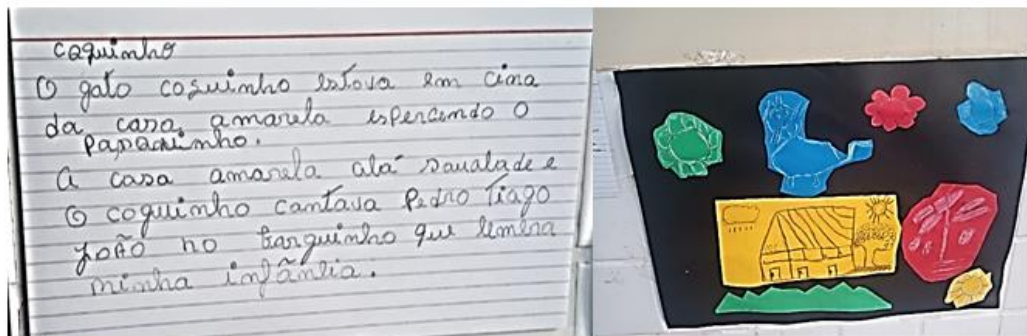 coquinho
O gato coquinho estava em cima
da casa amarela espercando o
passarinho.
A casa amarela alá saualade e
O coquinho cantava Pedro Tiago
JOÃO no barquinho que lembra
minha infância.